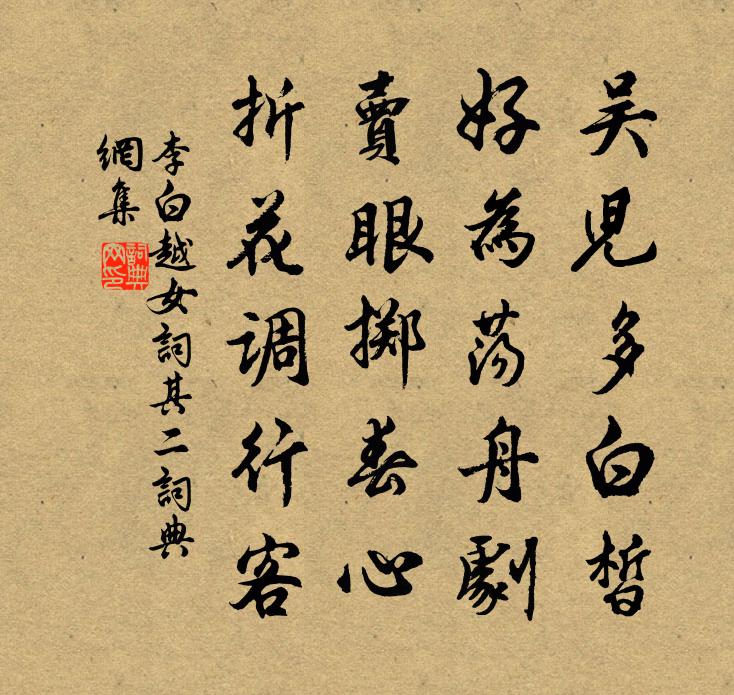 吴児多白皙
好為荡舟劇
賣眼掷春心
折花调行客
李白越女詞其二詞典
網集
詞典
网印